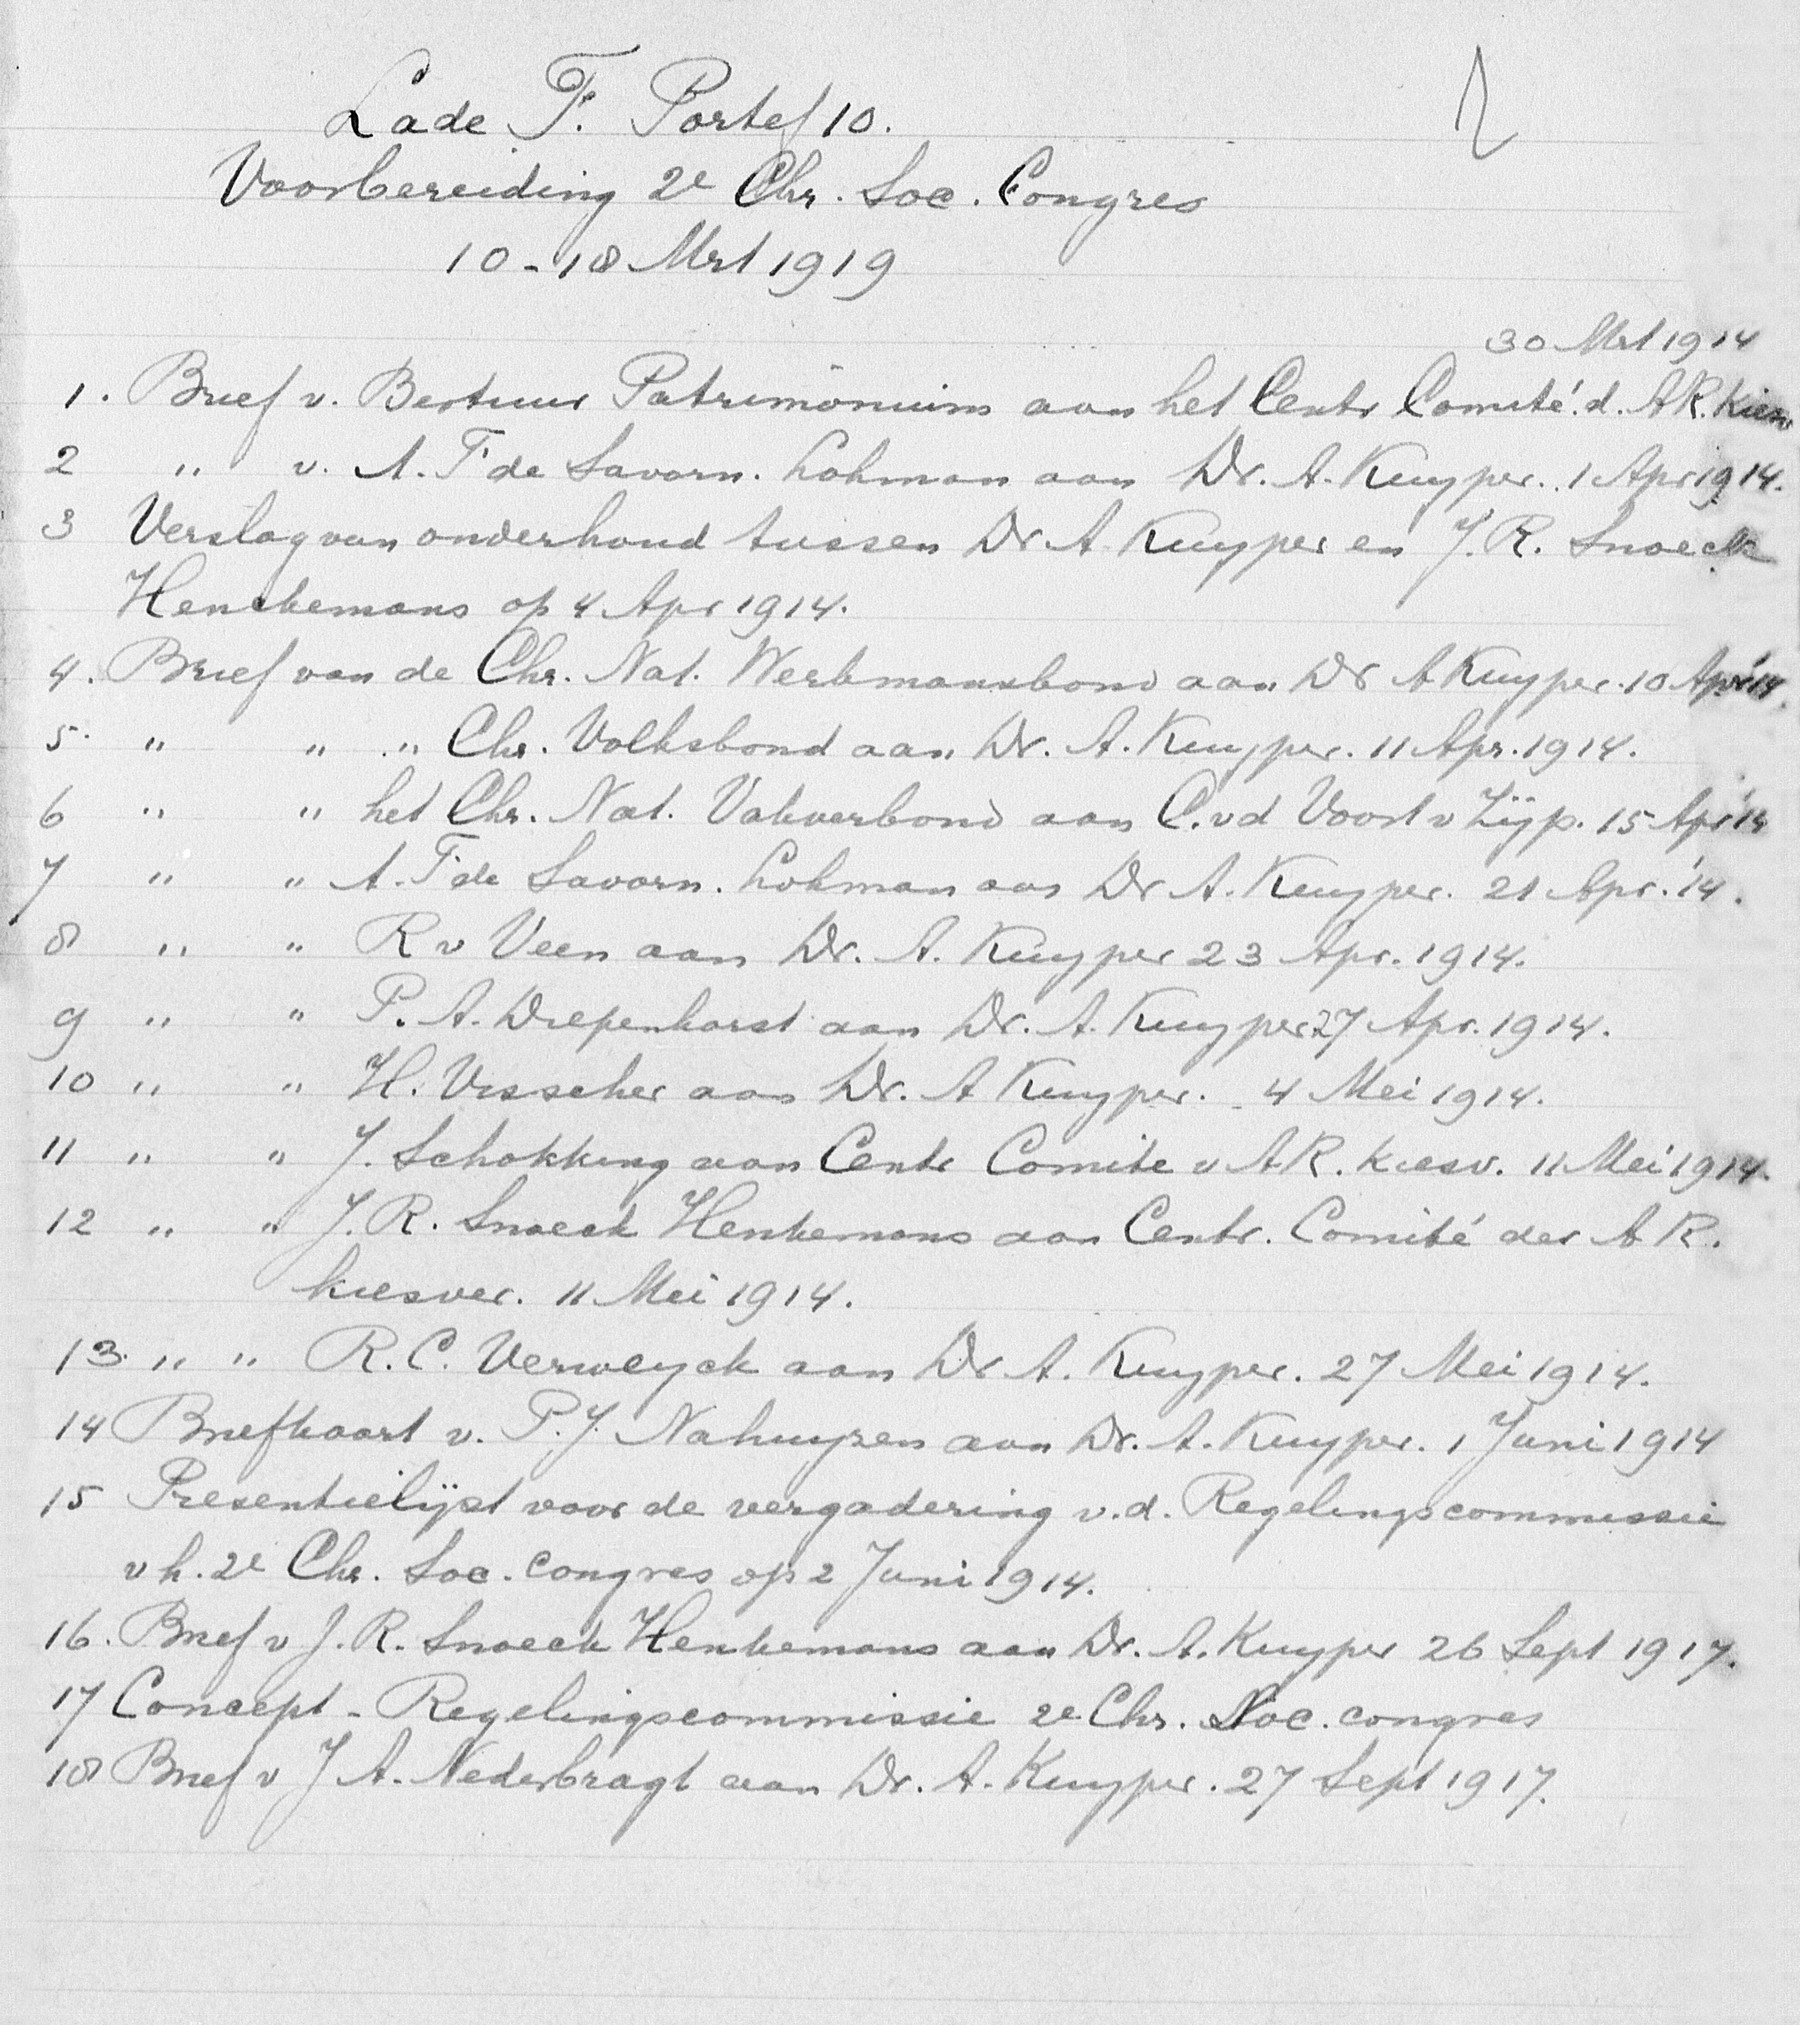 Lade F. Portef 10.
Voorbereiding 2e Chr. Soc. Congres
10-18 Mrt 1919
30 Mrt 1914
1. Brief v. Bestuur Patrimonium aan het Centr Comité. d. AR. Kiesv
2 " v. A. F de Savorn. Lohman aan Dr. A. Kuyper. 1 Apr 1914.
3 Verslag van onderhoud tussen Dr A. Kuyper en J. R. Snoeck
Henckemans op 4 Apr 1914.
4. Brief van de Chr. Nat. Werkmansbond aan Dr A Kuyper. 10 Apr '14.
5. " " " Chr. Volksbond aan Dr. A. Kuyper. 11 Apr. 1914.
6 " " het Chr. Nat. Vakverbond aan C. vd Voort v Zijp. 15 Apr '14
7 " " A. F de Savorn. Lohman aan Dr A. Kuyper. 21 Apr. '14.
8 " " R v Veen aan Dr. A. Kuyper 23 Apr. 1914.
9 " " P. A. Diepenhorst aan Dr. A. Kuyper 27 Apr. 1914.
10 " " H. Visscher aan Dr. A Kuyper. 4 Mei 1914.
11 " " J. Schokking aan Centr Comite v AR. Kiesv. 11 Mei 1914.
12 " " J. R. Snoeck Henkemans aan Centr. Comité der A R.
kiesver. 11 Mei 1914.
13. " " R. C. Verweyck aan Dr A. Kuyper. 27 Mei 1914.
14 Briefkaart v. P. J. Nahuyzen aan Dr. A. Kuyper. 1 Juni 1914
15 Presentielijst voor de vergadering v. d. Regelingscommissie
v h. 2e Chr. Soc. congres op 2 Juni 1914.
16. Brief v J. R. Snoeck Henkemans aan Dr. A. Kuyper 26 Sept 1917.
17 Concept - Regelingscommissie 2e Chr. Soc. congres
18 Brief v J A. Nederbragt aan Dr. A. Kuyper. 27 Sept 1917.